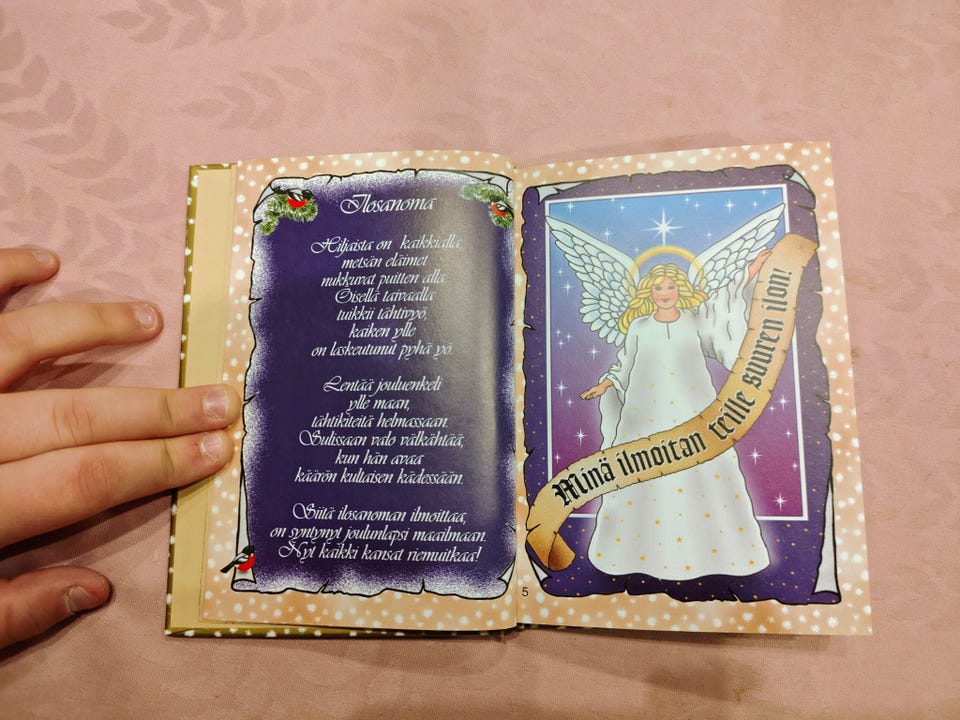 Ilosanoma
Hiljaista on kaikkialla,
metsän eläimet
nukkuvat puitten alla.
Öisellä taivaalla
tuikkii tähtivyö,
kaiken ylle
on laskeutunut pyhä yö.
Lentää jouluenkeli
ylle maan,
tähtikiteitä helmassaan.
Sulissaan valo välkähtää,
kun hän avaa
käärön kultaisen kädessään.
Siitä ilosanoman ilmoittaa,
on syntynyt joulunlapsi maailmaan.
Nyt kaikki kansat riemuitkaa!
5
Minä ilmoitan teille suuren ilon!